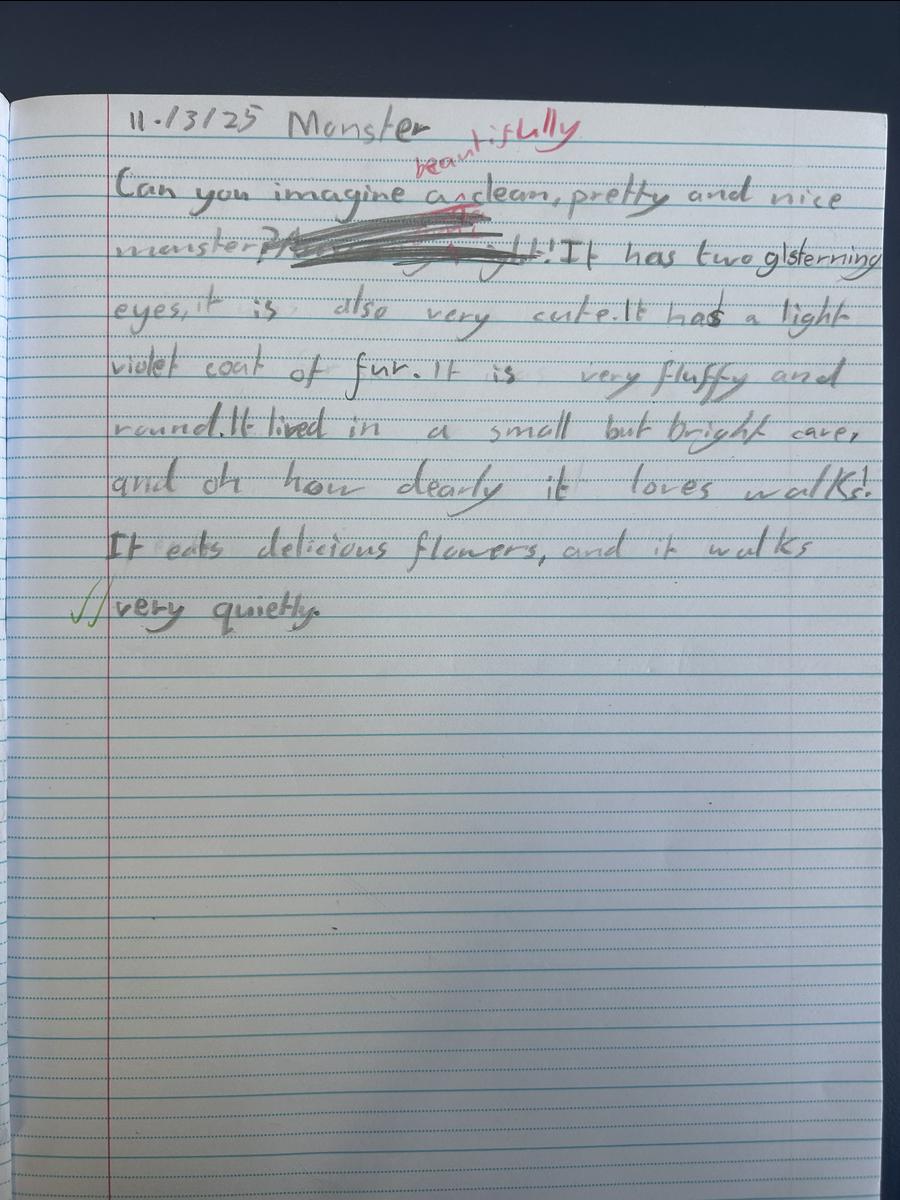 11./3/25 Monster
beautifully
Can you imagine a clean, pretty and nice
monster? It has two glsterning
eyes, it is also very cute. It has a light
violet coat of fur. It is very fluffy and
round. It lived in a small but bright cave,
and oh how dearly it loves walks!
It eats delicious flowers, and it walks
very quietly.